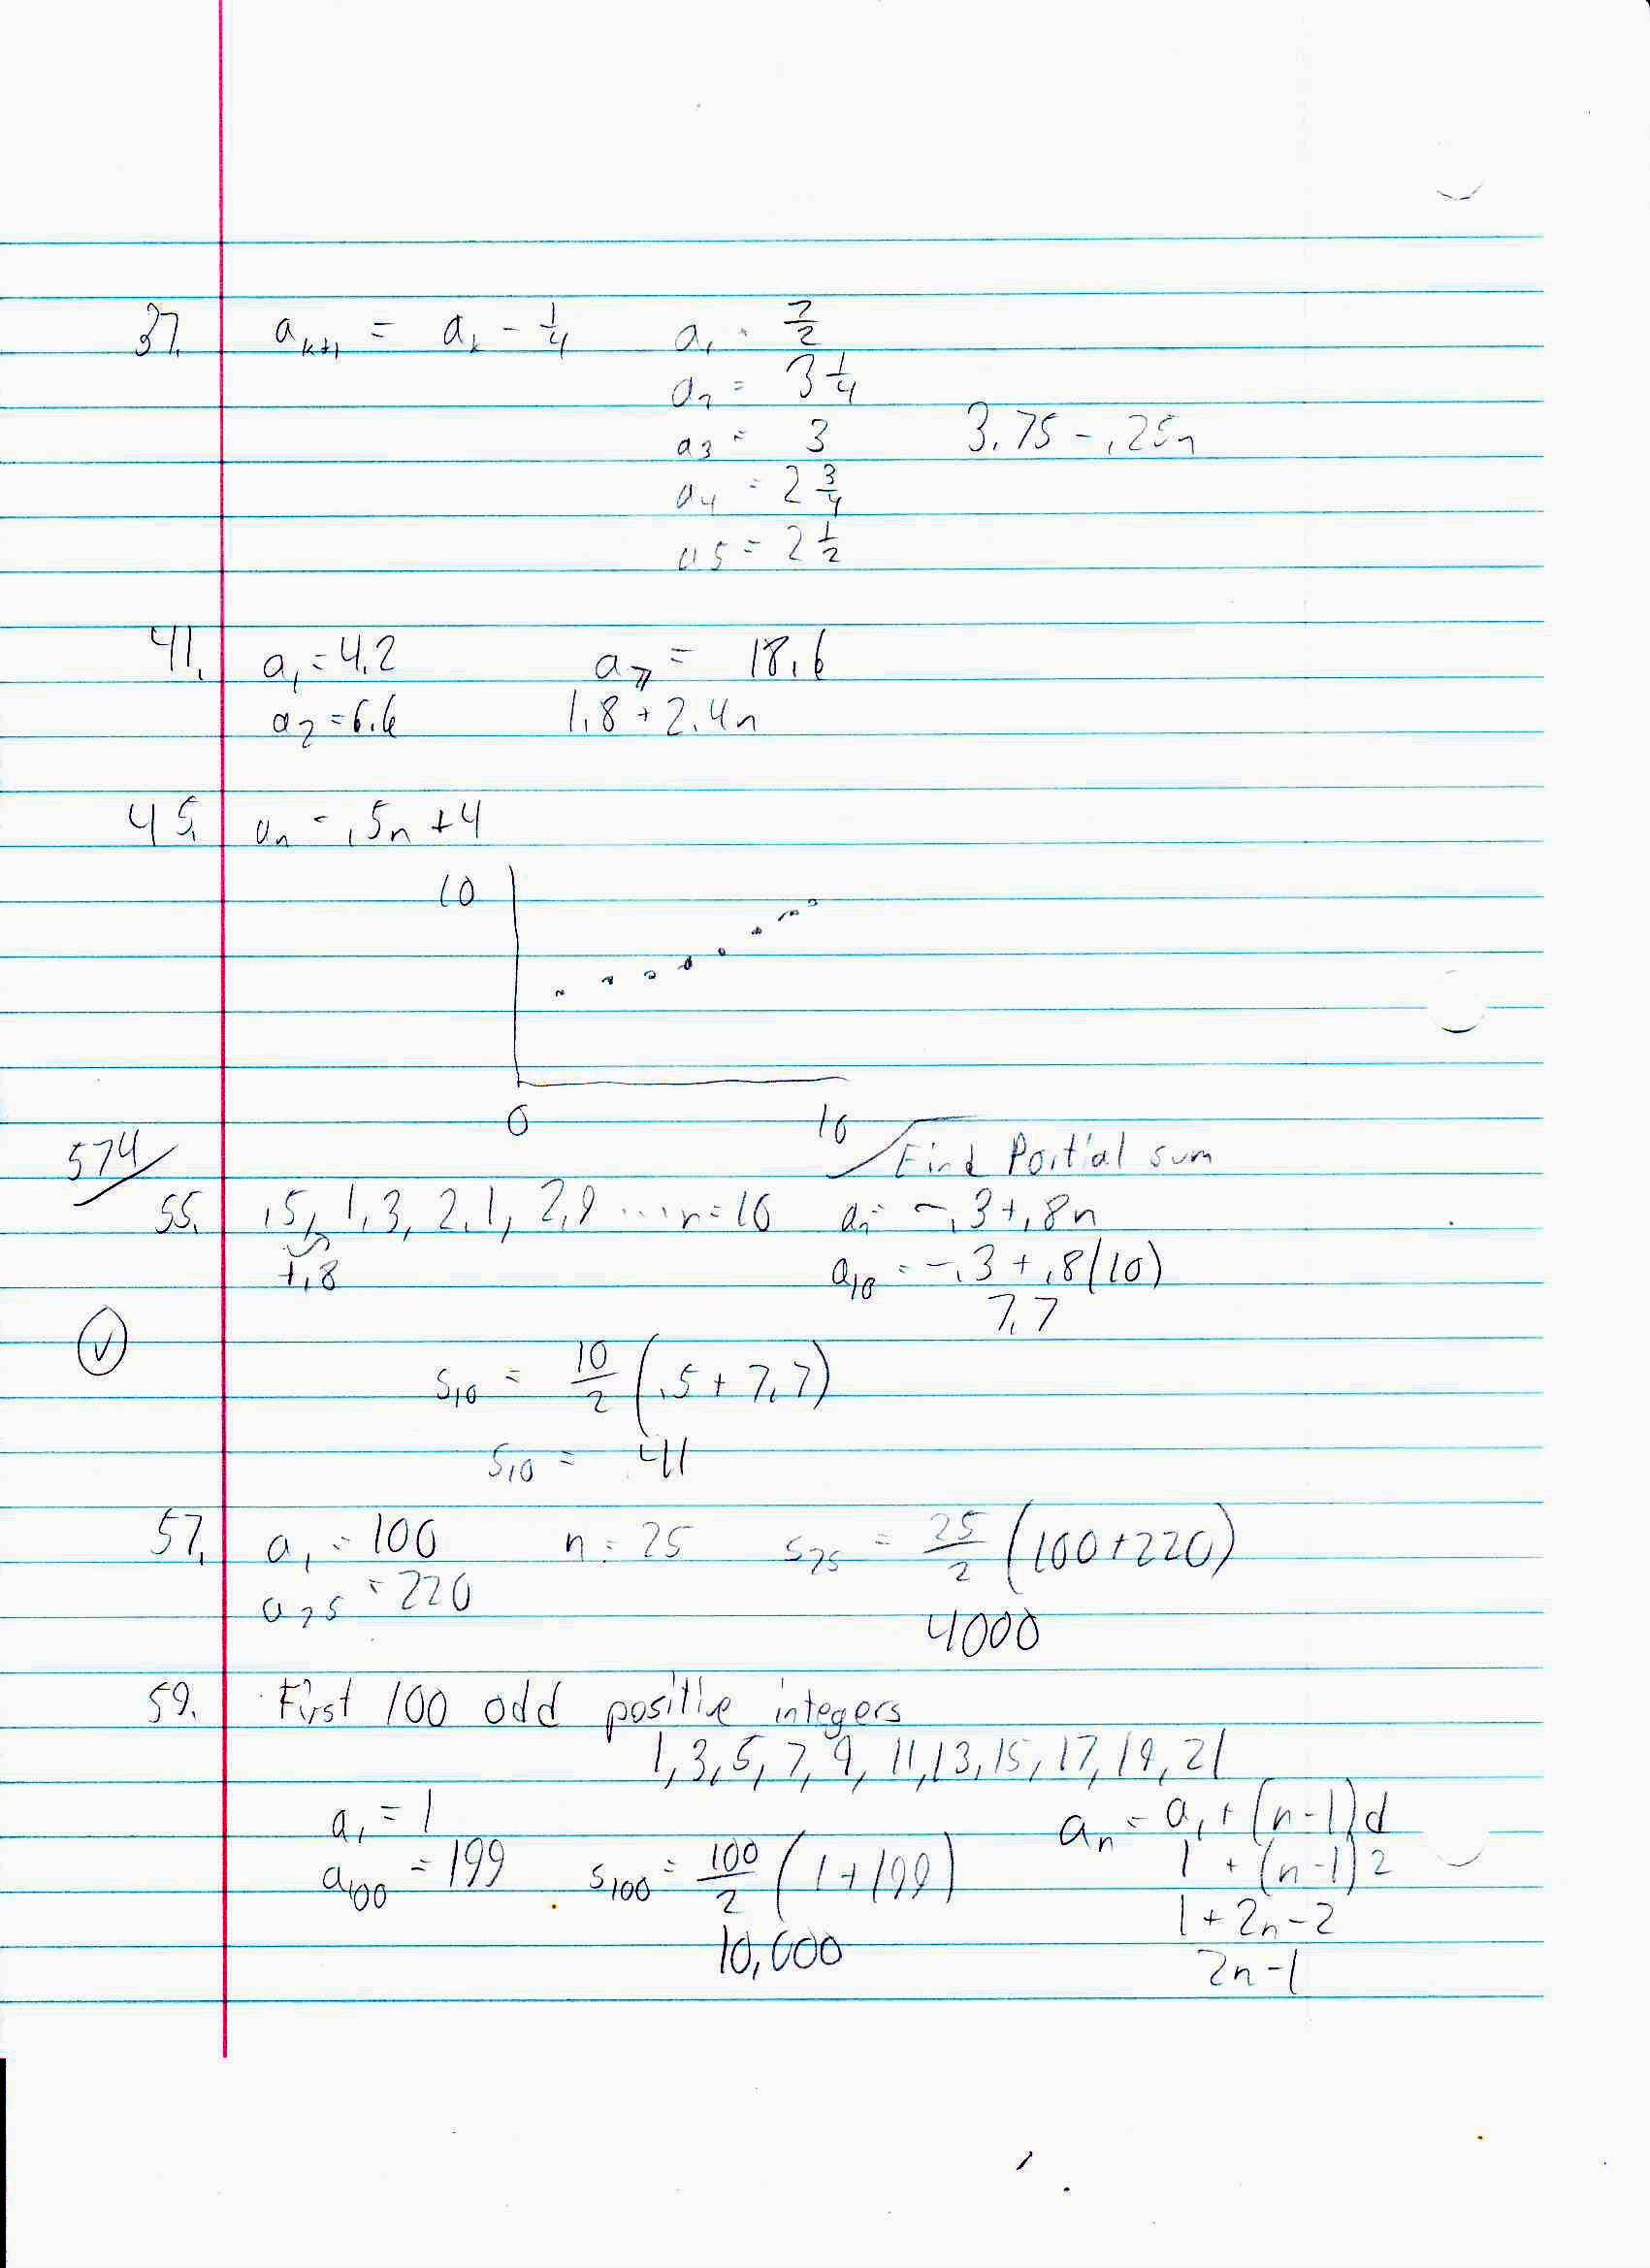 37. a_{k+1} = a_k - 1/4 a_1 = 7/2
a_2 = 3 1/4
a_3 = 3 3.75 - .25n
a_4 = 2 3/4
a_5 = 2 1/2
41. a_1 = 4.2 a_7 = 18.6
a_2 = 6.6 1.8 + 2.4n
45. a_n = .5n + 4
10
0 10
574 Find Partial sum
55. .5, 1.3, 2.1, 2.9 ... n = 10 a_n = -.3 + .8n
+.8 a_10 = -.3 + .8(10)
7.7
s_10 = 10/2 (.5 + 7.7)
s_10 = 41
57. a_1 = 100 n = 25 s_25 = 25/2 (100 + 220)
a_25 = 220
4000
59. First 100 odd positive integers
1, 3, 5, 7, 9, 11, 13, 15, 17, 19, 21
a_1 = 1 a_n = a_1 + (n-1)d
a_100 = 199 s_100 = 100/2 (1 + 199) 1 + (n-1)2
1 + 2n - 2
10,000 2n - 1